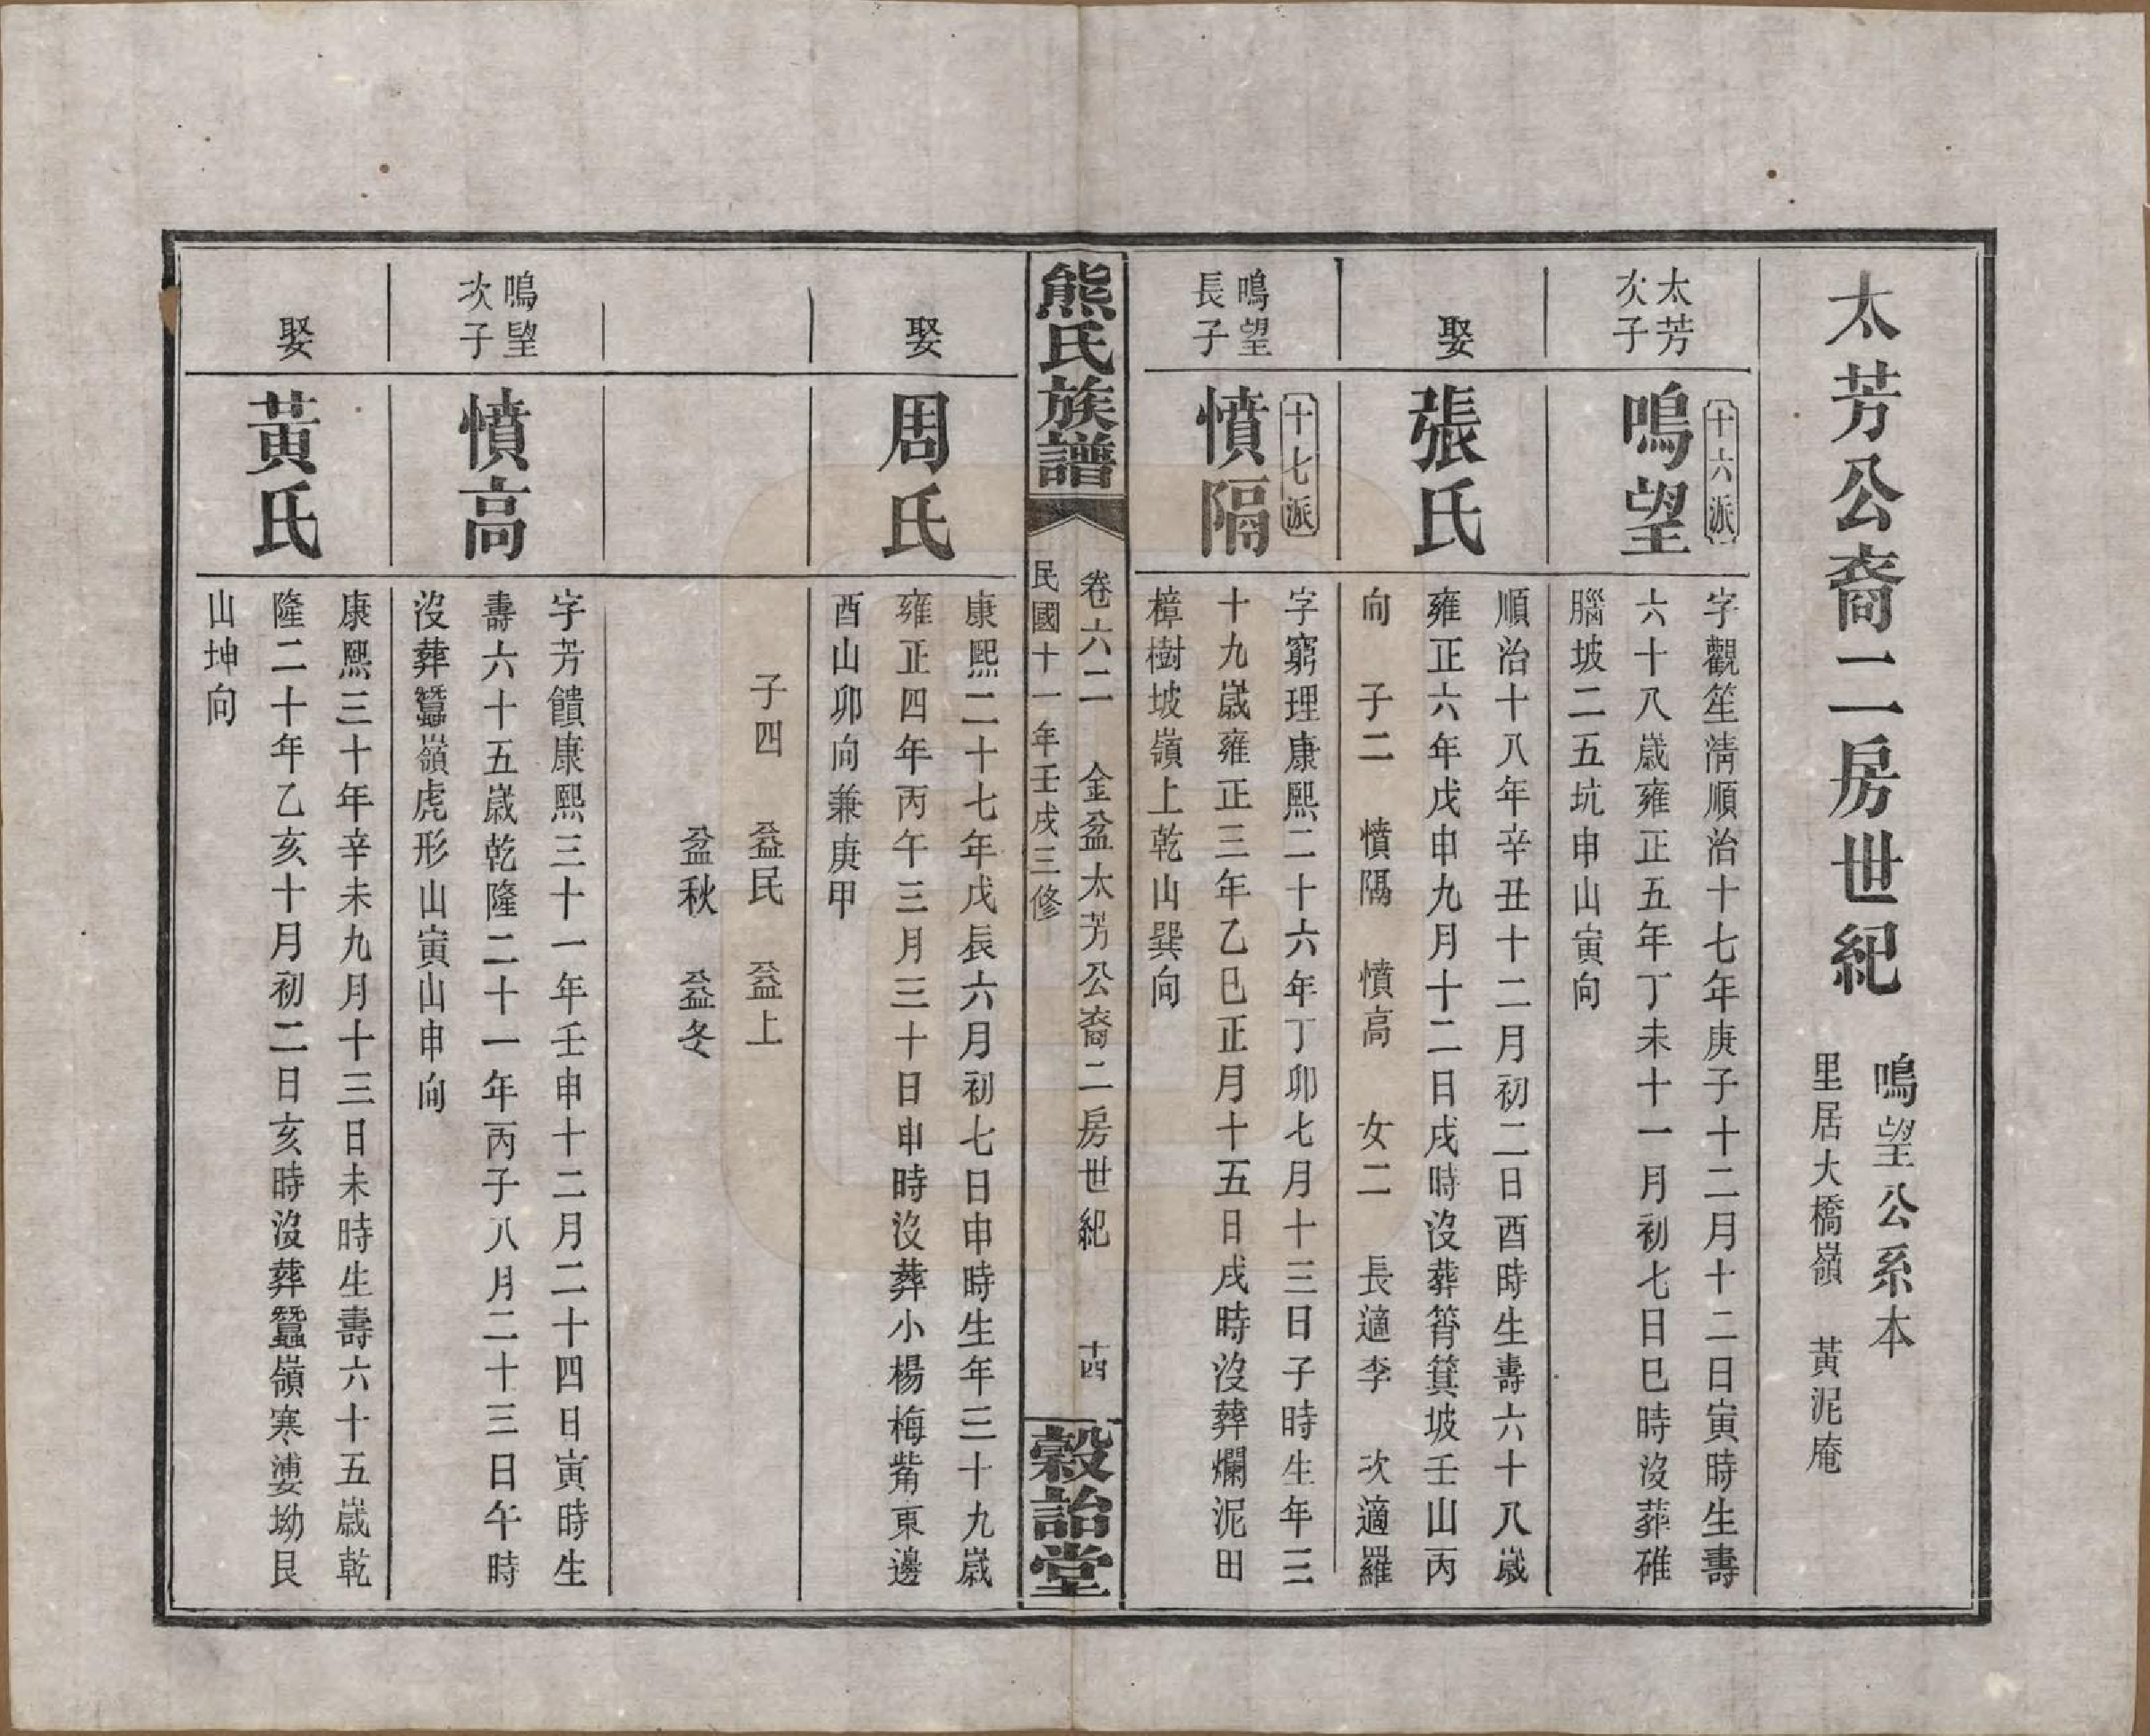 太芳公裔二房世紀
鳴望公系本
里居大橋嶺 黃泥庵
太芳
次子
十六派
鳴望
字觀笙清順治十七年庚子十二月十二日寅時生壽
六十八歲雍正五年丁未十一月初七日巳時沒葬碓
腦坡二五坑申山寅向
娶
張氏
順治十八年辛丑十二月初二日酉時生壽六十八歲
雍正六年戊申九月十二日戌時沒葬筲箕坡壬山丙
向 子二 憤隔 憤高 女二 長適李 次適羅
鳴望
長子
十七派
憤隔
字窮理康熙二十六年丁卯七月十三日子時生年三
十九歲雍正三年乙巳正月十五日戌時沒葬爛泥田
樟樹坡嶺上乾山巽向
熊氏族譜
卷六二 金盆太芳公裔二房世紀 十四
民國十一年壬戌三修
穀詒堂
娶
周氏
康熙二十七年戊辰六月初七日申時生年三十九歲
雍正四年丙午三月三十日申時沒葬小楊梅觜東邊
酉山卯向兼庚甲
子四 益民 益上
益秋 益冬
鳴望
次子
憤高
字芳饋康熙三十一年壬申十二月二十四日寅時生
壽六十五歲乾隆二十一年丙子八月二十三日午時
沒葬蠶嶺虎形山寅山申向
娶
黃氏
康熙三十年辛未九月十三日未時生壽六十五歲乾
隆二十年乙亥十月初二日亥時沒葬蠶嶺寒婆坳艮
山坤向